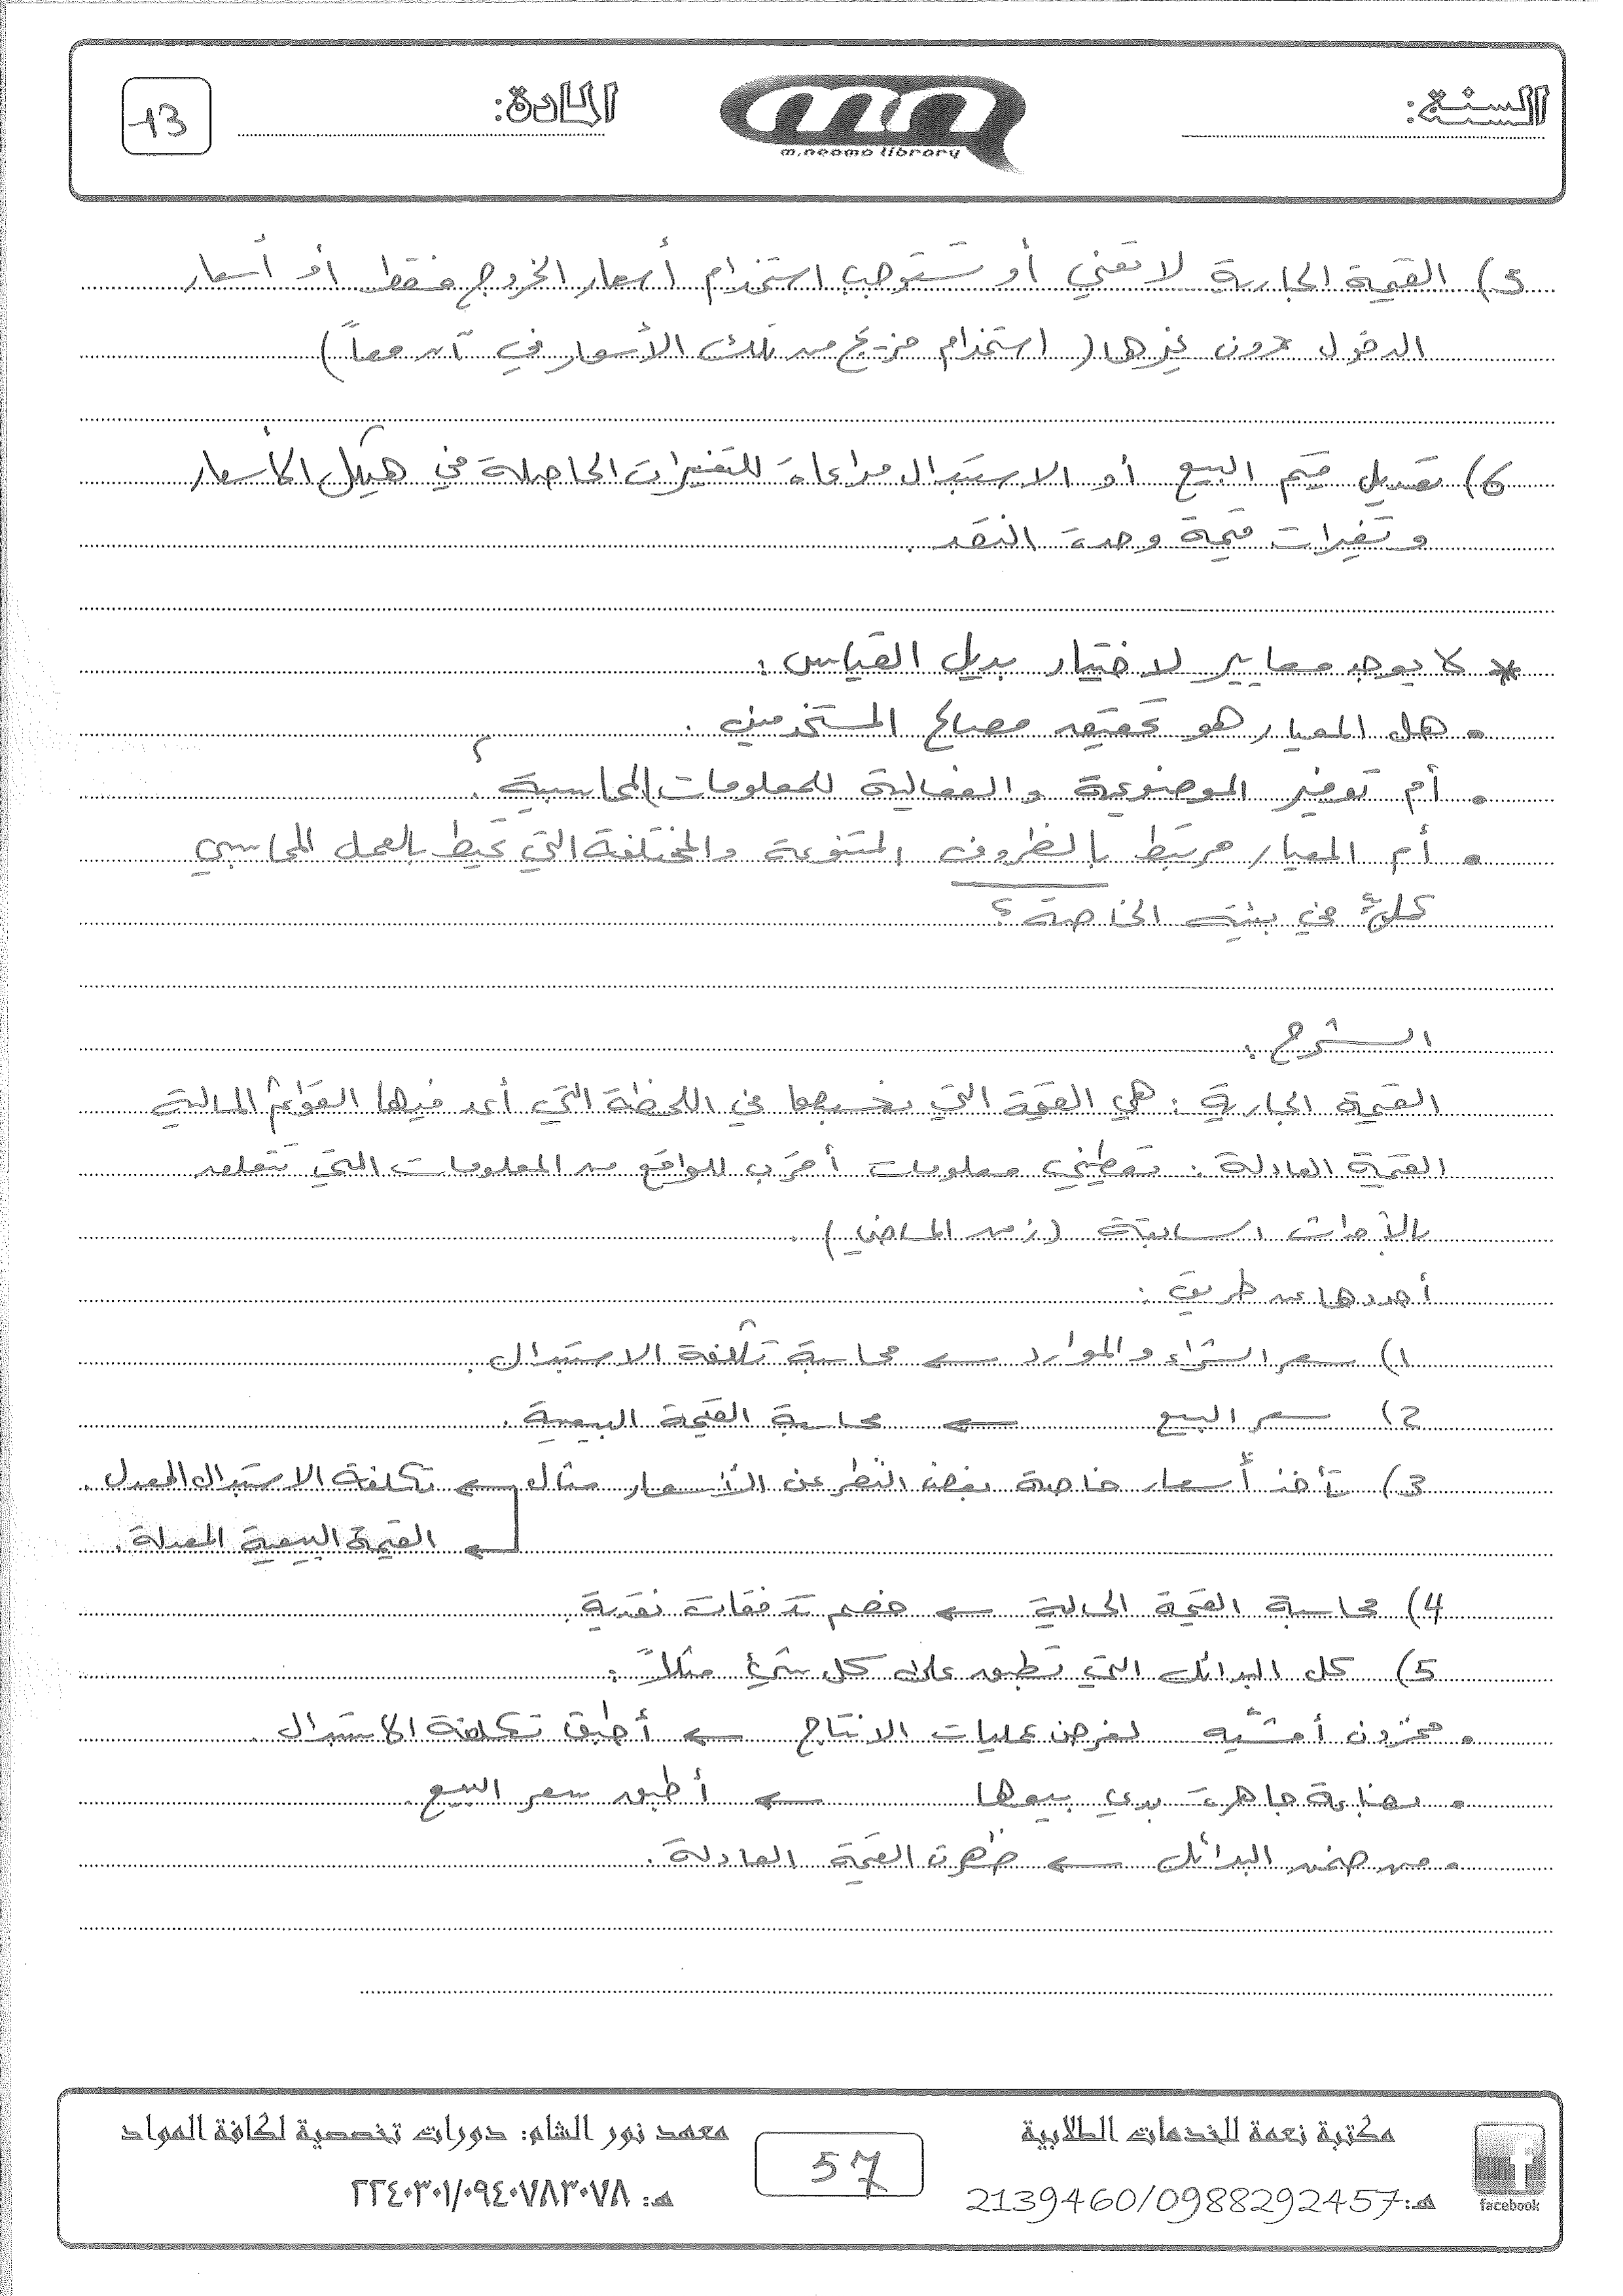 السنة:
m.neema library
المادة:
13
5) القيمة الجارية لا تعني أو تستوجب استخدام أسعار الخروج فقط أو أسعار
الدخول دون غيرها ( استخدام مزيج من تلك الأسعار في آن معاً )
6) تعديل قيم البيع أو الاستبدال مراعاة للتغيرات الحاصلة في هيكل الأسعار
و تغيرات قيمة وحدة النقد .
* لا يوجد معايير لاختيار بديل القياس :
• هل المعيار هو تحقيق مصالح المستخدمين .
• أم توفير الموضوعية و الفعالية للمعلومات المحاسبية ؟
• أم المعيار مرتبط بالظروف المتنوعة والمختلفة التي تحيط بالعمل المحاسبي
كلٌ في بيئته الخاصة ؟
الشرح :
القيمة الجارية : هي القيمة التي نحسبها في اللحظة التي أعد فيها القوائم المالية
القيمة العادلة : تعطيني معلومات أقرب للواقع من المعلومات التي تتعلق
بالأحداث السابقة ( زمن الماضي ) .
أحددها عن طريق :
1) سعر الشراء و الموارد ← محاسبة تكلفة الاستبدال .
2) سعر البيع ← محاسبة القيمة البيعية .
3) تأخذ أسعار خاصة بغض النظر عن الأسعار مثال ← تكلفة الاستبدال المعدل .
← القيمة البيعية المعدلة .
4) محاسبة القيمة الحالية ← خصم تدفقات نقدية .
5) كل البدائل التي تطبق على كل شيء مثلاً :
• مخزون أمشيه لغرض عمليات الانتاج ← أطبق تكلفة الاستبدال .
• بضاعة جاهزة بدي بيعها ← أطبق سعر البيع .
• من ضمن البدائل ← ظهرت القيمة العادلة .
مكتبة نعمة للخدمات الطلابية
هـ: 2139460/0988292457
facebook
57
معهد نور الشام: دورات تخصصية لكافة المواد
هـ: ٢٢٤٠٣٠١/٠٩٤٠٧٨٣٠٧٨